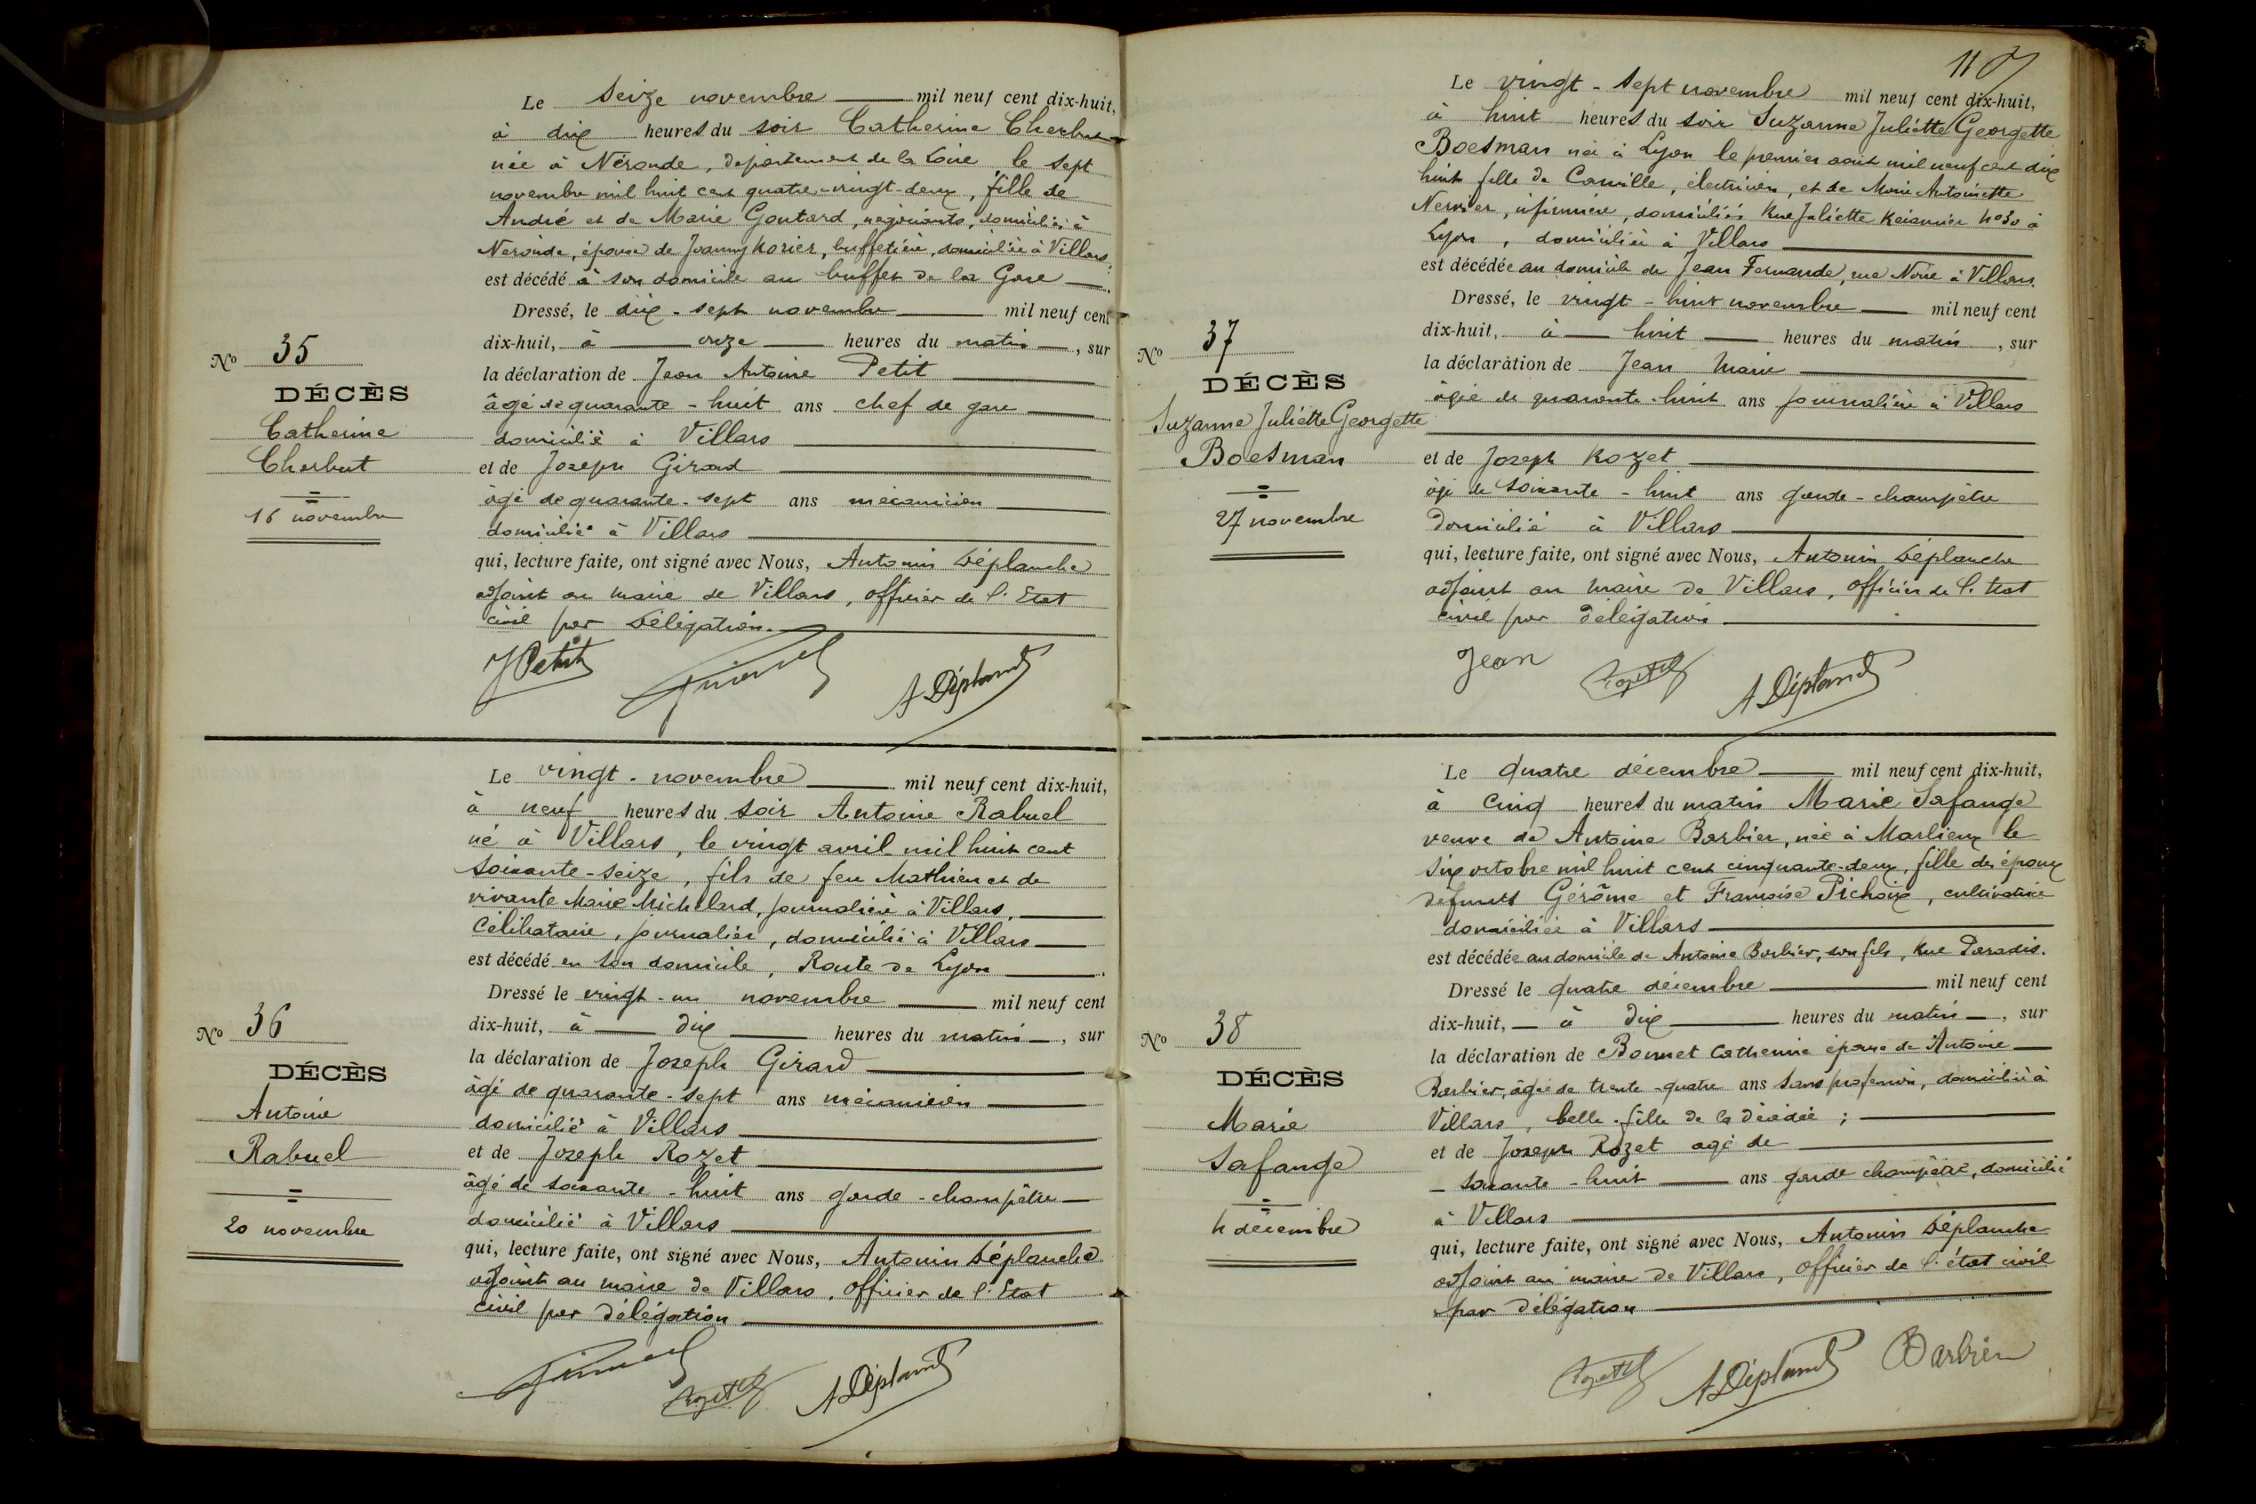 Le seize novembre mil neuf cent dix-huit,
à dix heures du soir Catherine Cherbut
née à Néronde, département de la Loire le sept
novembre mil huit cent quatre-vingt-deux, fille de
André et de Marie Goutard, négociants, domiciliés à
Néronde, épouse de Joanny Rorier, buffetière, domiciliée à Villars,
est décédé à son domicile au buffet de la Gare
Dressé, le dix-sept novembre mil neuf cent
dix-huit, à onze heures du matin, sur
la déclaration de Jean Antoine Petit
âgé de quarante-huit ans chef de gare
domicilié à Villars
et de Joseph Girard
âgé de quarante-sept ans mécanicien
domicilié à Villars
qui, lecture faite, ont signé avec Nous, Antonin Déplanche
adjoint au maire de Villars, officier de l'Etat
civil par délégation.
JPetit ADéplanche
No 35
DÉCÈS
Catherine
Cherbut
16 novembre
Le vingt-novembre mil neuf cent dix-huit,
à neuf heures du soir Antoine Rabuel
né à Villars, le vingt avril mil huit cent
soixante-seize, fils de feu Mathieu et de
vivante Marie Michelard, journalière à Villars,
célibataire, journalier, domicilié à Villars
est décédé en son domicile, Route de Lyon.
Dressé le vingt-un novembre mil neuf cent
dix-huit, à dix heures du matin, sur
la déclaration de Joseph Girard
âgé de quarante-sept ans mécanicien
domicilié à Villars
et de Joseph Rozet
âgé de soixante-huit ans garde-champêtre
domicilié à Villars
qui, lecture faite, ont signé avec Nous, Antonin Déplanche
adjoint au maire de Villars, officier de l'Etat
civil par délégation
Rozet ADéplanche
No 36
DÉCÈS
Antoine
Rabuel
20 novembre
117
Le vingt-sept novembre mil neuf cent dix-huit,
à huit heures du soir Suzanne Juliette Georgette
Boesman née à Lyon le premier août mil neuf cent dix
huit fille de Camille, électricien, et de Marie Antoinette
infirmière, domiciliés Rue Juliette Récamier No 30 à
Lyon, domiciliée à Villars
est décédée au domicile de Jean Fernande, rue Noire à Villars
Dressé, le vingt-huit novembre mil neuf cent
dix-huit, à huit heures du matin, sur
la déclaration de Jean Marie
âgée de quarante-huit ans journalière à Villars
et de Joseph Rozet
âgé de soixante-huit ans garde-champêtre
domicilié à Villars
qui, lecture faite, ont signé avec Nous, Antonin Déplanche
adjoint au maire de Villars, officier de l'Etat
civil par délégation
Jean Rozet ADéplanche
No 37
DÉCÈS
Suzanne Juliette Georgette
Boesman
27 novembre
Le quatre décembre mil neuf cent dix-huit,
à cinq heures du matin Marie Lafange
veuve de Antoine Barbier, née à Marlieux le
six octobre mil huit cent cinquante-deux, fille des époux
défunts Gérôme et Françoise Pichoix, cultivatrice
domiciliée à Villars
est décédée au domicile de Antoine Barbier, son fils, Rue Paradis.
Dressé le quatre décembre mil neuf cent
dix-huit, à dix heures du matin, sur
la déclaration de Bonnet Catherine épouse de Antoine
Barbier, âgée de trente-quatre ans sans profession, domiciliée à
Villars, belle-fille de la décédée ;
et de Joseph Rozet agé de
soixante-huit ans garde champêtre, domicilié
à Villars
qui, lecture faite, ont signé avec Nous, Antonin Déplanche
adjoint au maire de Villars, officier de l'état civil
par délégation
Rozet ADéplanche Barbier
No 38
DÉCÈS
Marie
Lafange
4 décembre